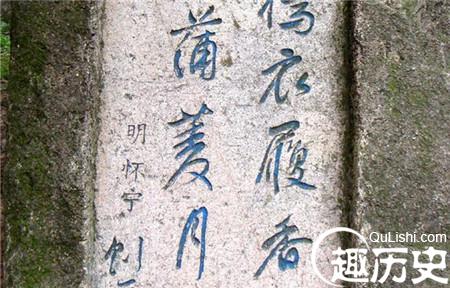 衣履香
蒲菱月
明怀宁
刘
QuLishi.com
趣历史